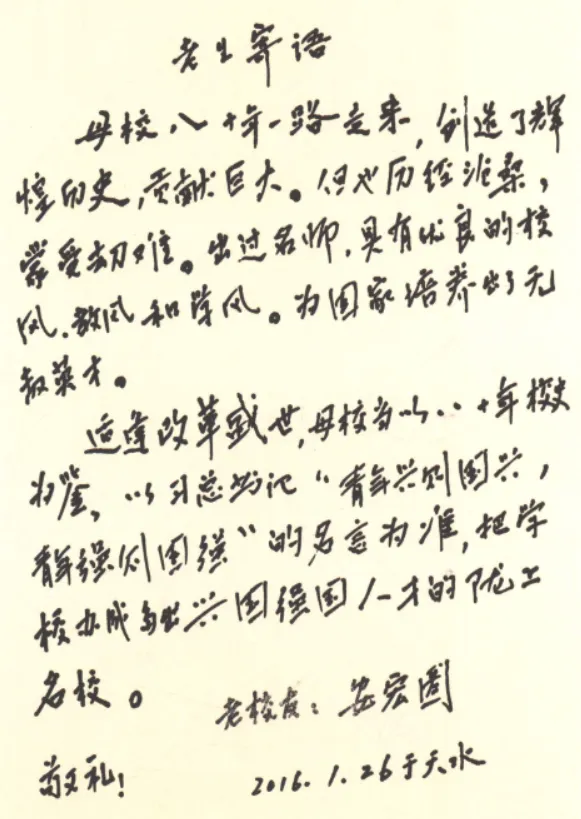 老生寄语
母校八十年一路走来，创造了辉
煌历史，贡献巨大。但也历经沧桑，
蒙受劫难。出过名师，具有优良的校
风、教风和学风。为国家培养出了无
数英才。
适逢改革盛世，母校当以八十年校史
为鉴，以习总书记“青年兴则国兴，
青年强则国强”的名言为准，把学
校办成多出兴国强国人才的陇上
名校。
老校友：安宏图
敬礼！
2016.1.26于天水